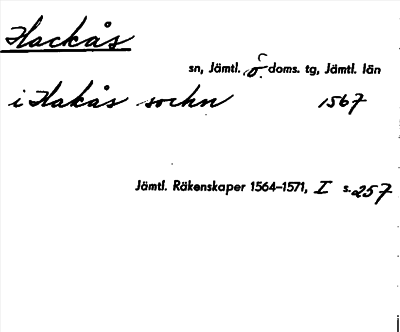 Hackås
sn, Jämtl. ö doms. tg, Jämtl. län
i Hakås sochn 1567
Jämtl. Räkenskaper 1564-1571, I s. 257